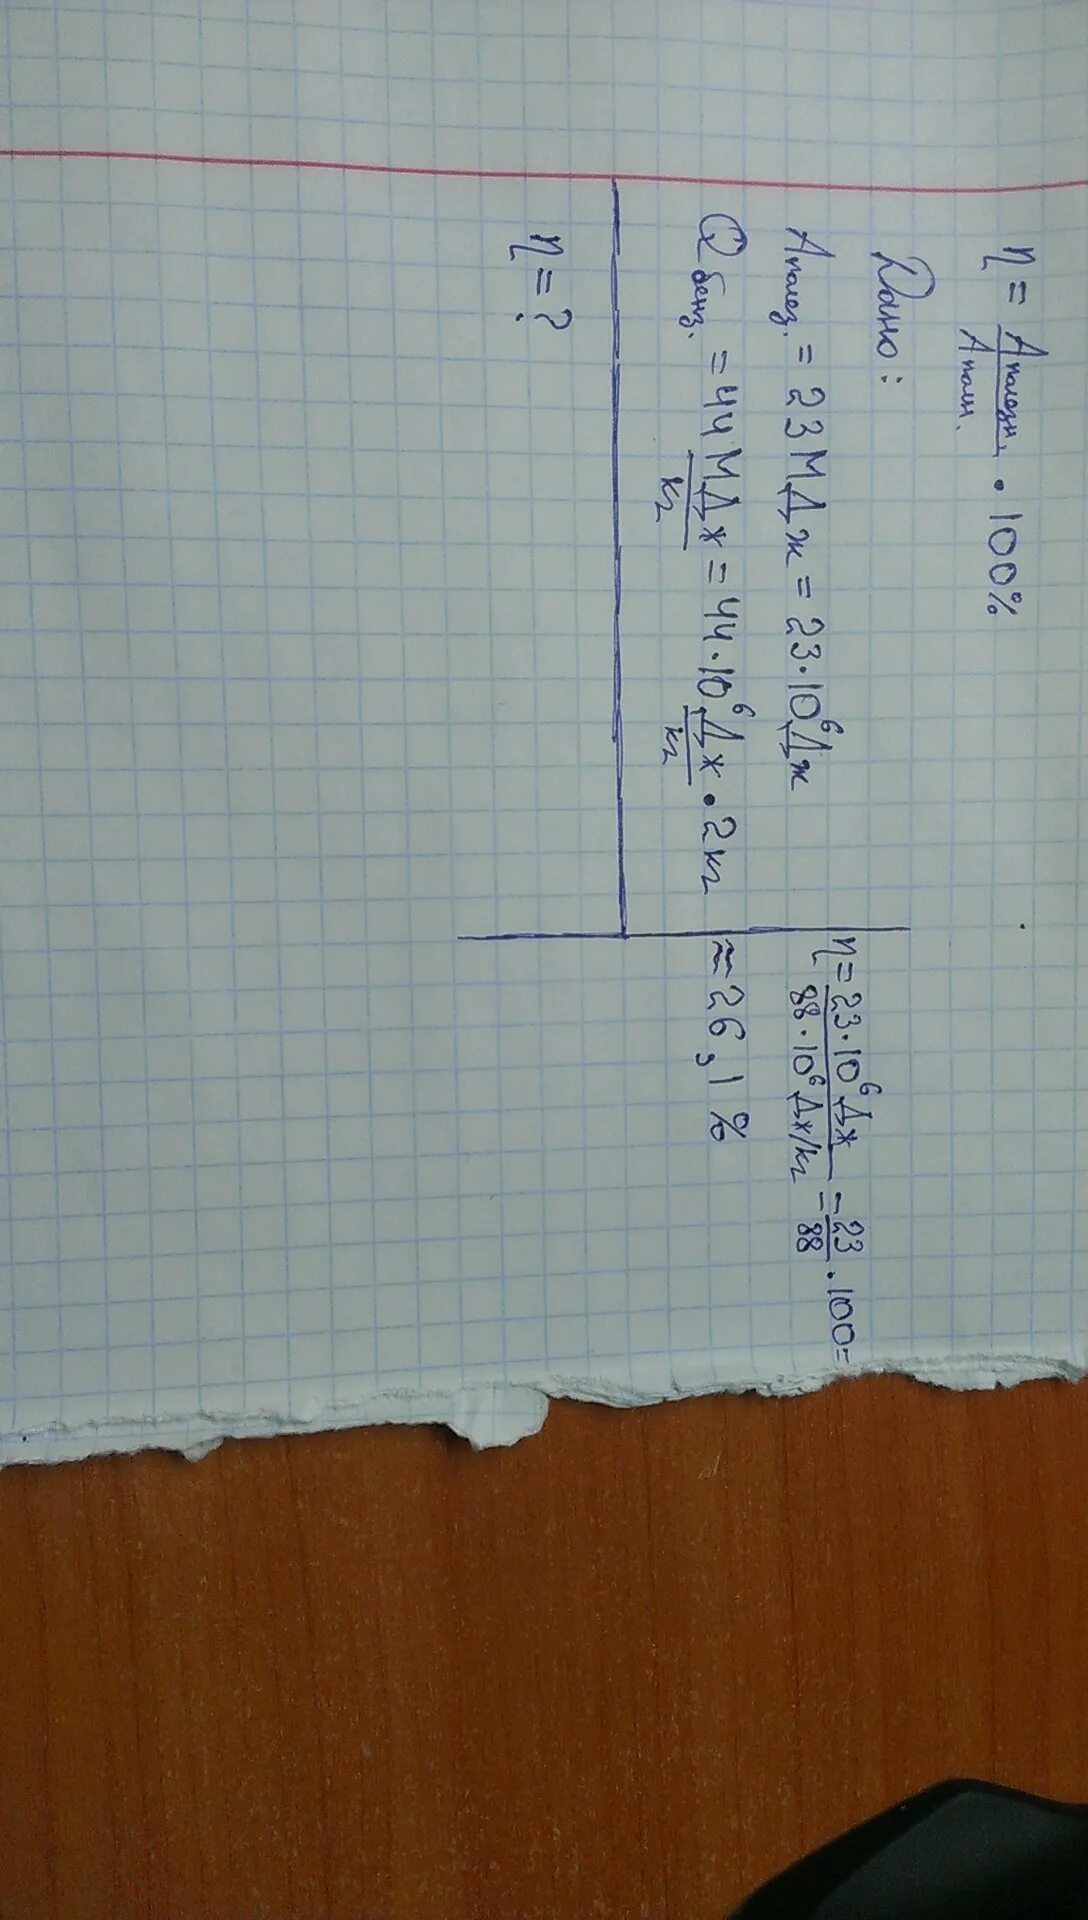 η = Аполезн. / Аполн. · 100%
Дано:
Аполез. = 23 МДж = 23·10⁶Дж
Qбенз. = 44 МДж/кг = 44·10⁶ Дж/кг · 2кг
η = ?
η = 23·10⁶Дж / 88·10⁶Дж/кг = 23/88 · 100 =
≈ 26,1 %